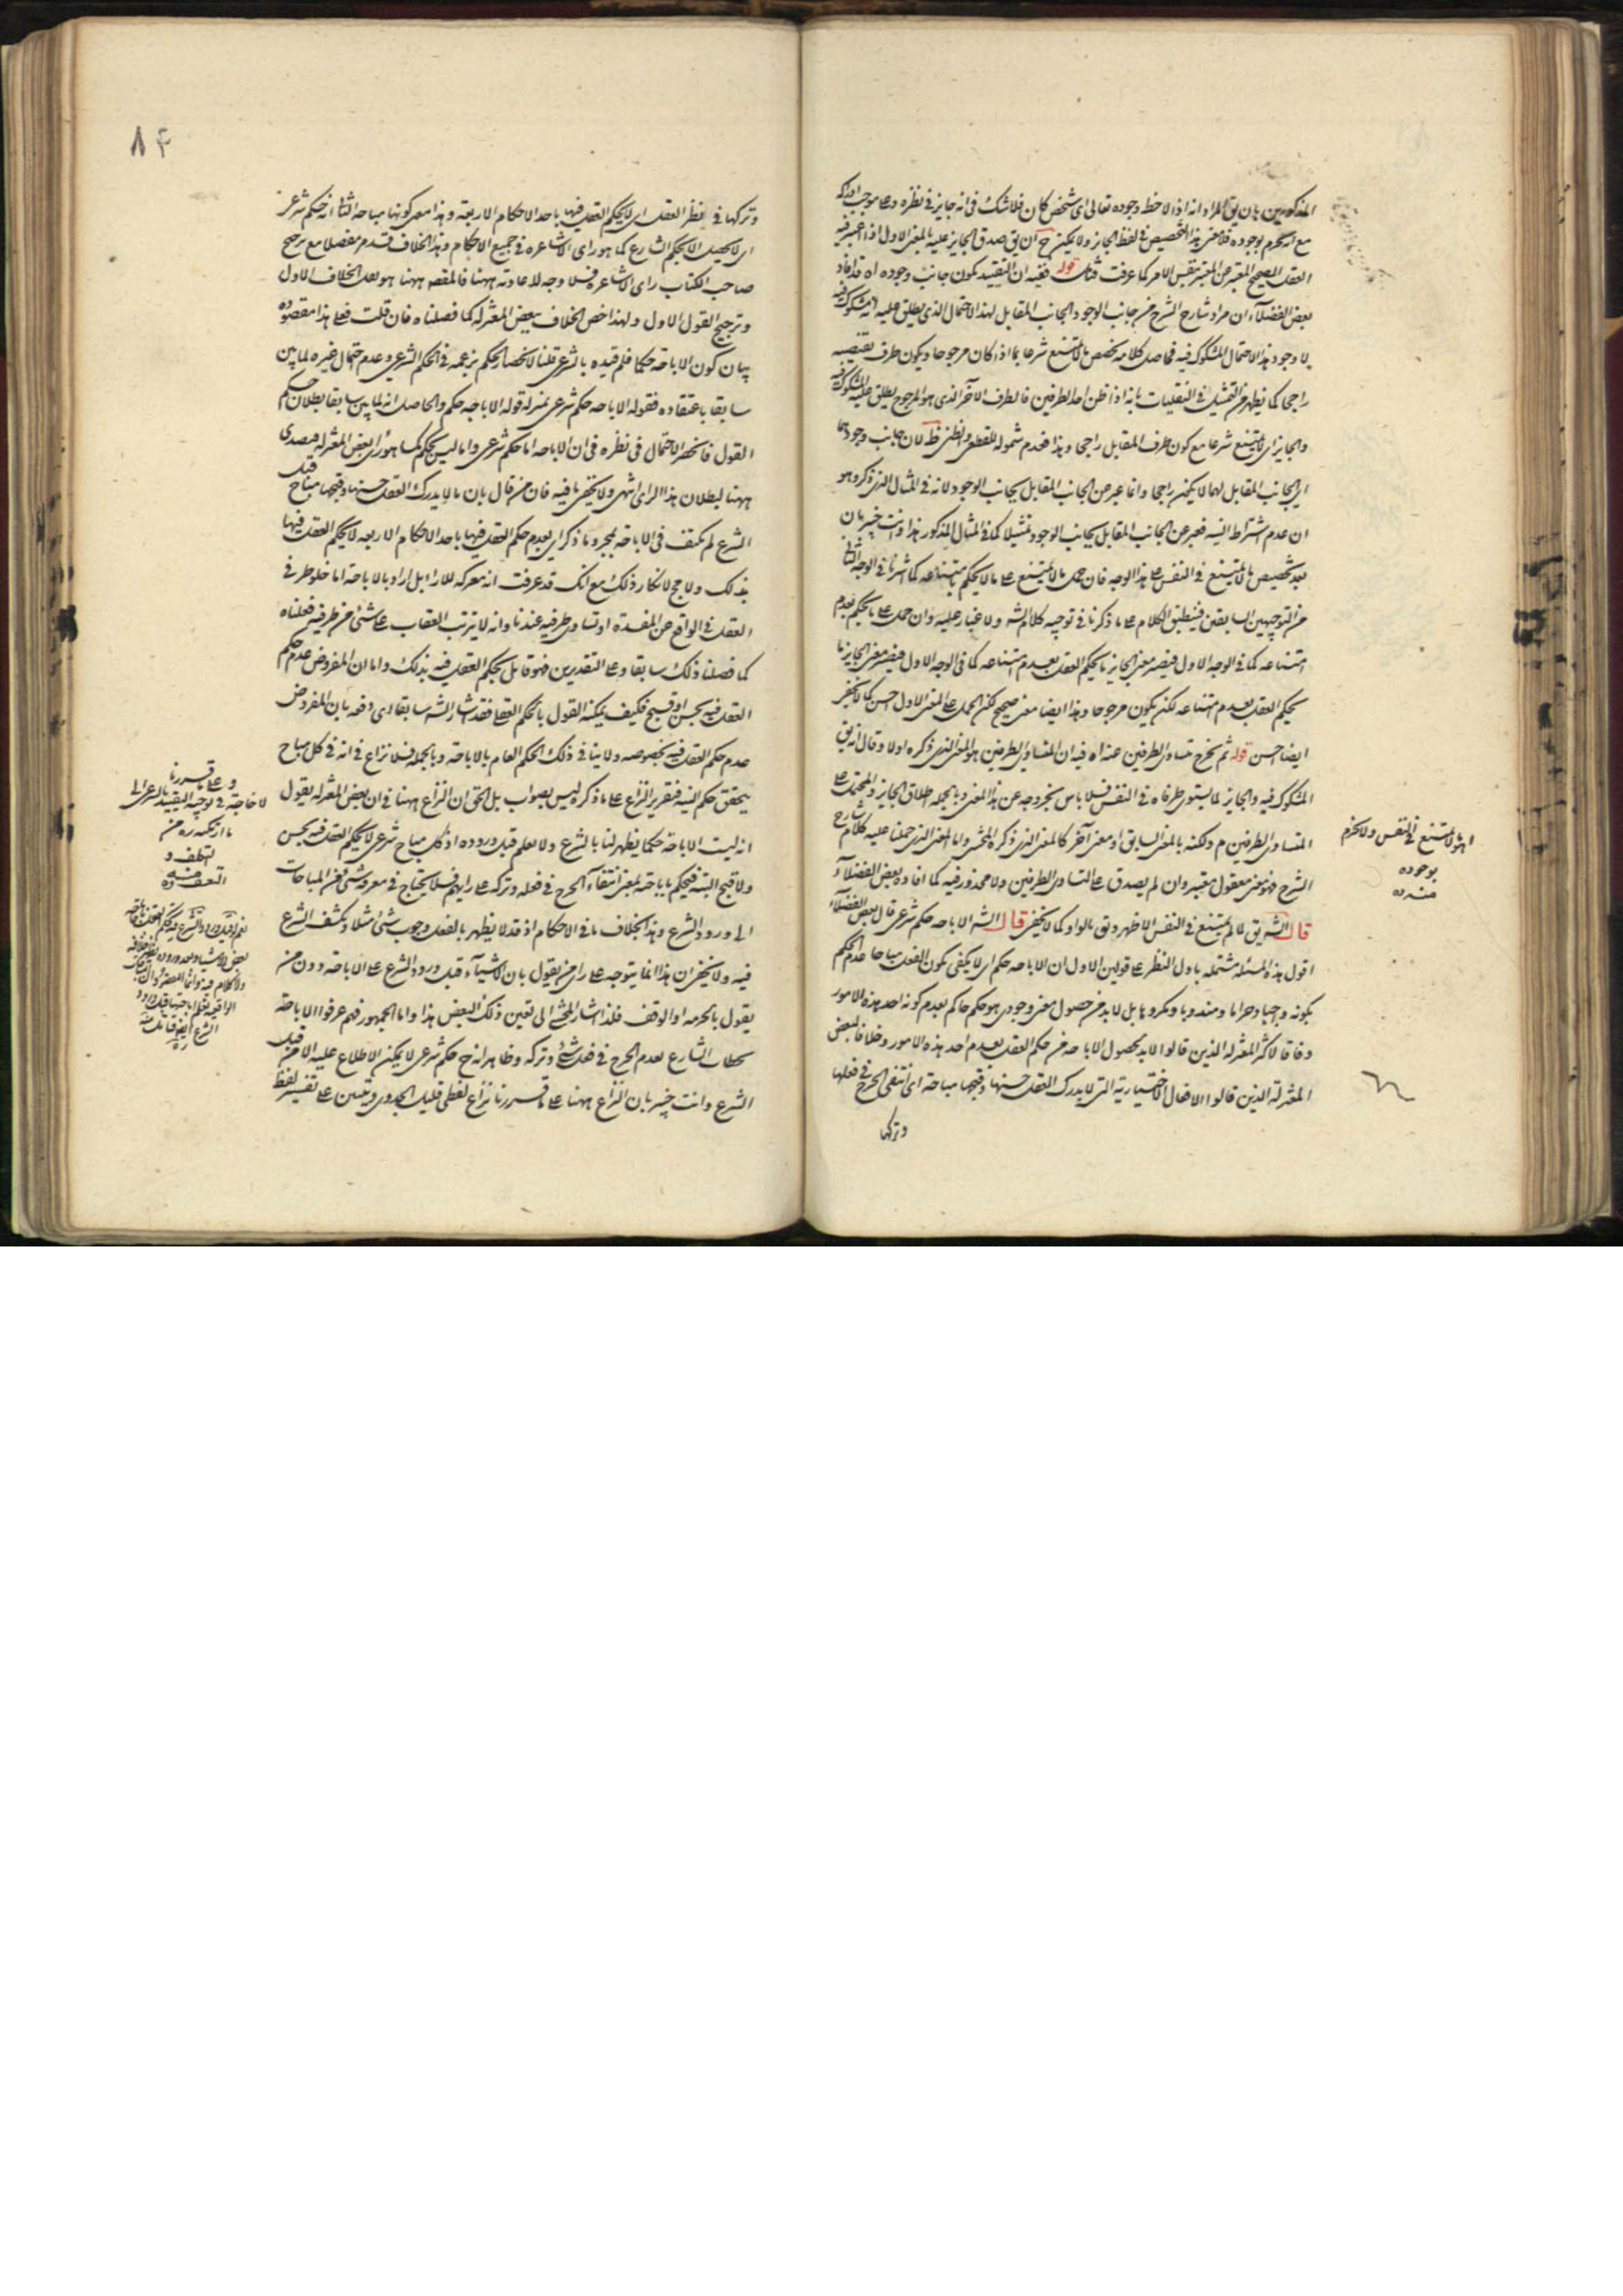 المذكورين بان يق المراد انه اذا لاحظ وجوده تعالى اى شخص كان فلا شك فى انه جايز فى نظره وعا موجب ادراكه
مع ان يجزم بوجوده فلا معنى لهذا التخصيص فى لفظ الجايز ولا يمكن ح ان يق صدق الجايز عليه بالمعنى الاول اذا اعتبر فيه
العقل الصحيح المعتبر عن المعتبر بنفس الامر كما عرفت فتأمل قوله ففيه ان التقييد بكون جانب وجوده اه قد افاد
بعض الفضلاء ان مراد شارح الشرح من جانب الوجود الجانب المقابل لهذا الاحتمال الذى يطلق عليه انه مشكوك فيه
لا وجود هذا الاحتمال المشكوك فيه فحاصل كلامه تخصيص ما لا يمتنع شرعا بما اذا كان مرجوحا ويكون طرف نقيضه
راجحا كما يظهر من التمثيل فى النقليات بانه اذا ظن احد الطرفين فالطرف الآخر الذى هو المرجوح يطلق عليه المشكوك فيه
والجايز اى لا يمتنع شرعا مع كون طرف المقابل راجحا وهذا فعدم شموله للقطعى والظنى ظ لان جانب وجودهما
اى الجانب المقابل لهما لا يمكن راجحا وانما عبر عن الجانب المقابل بجانب الوجود لانه فى المثال الذى ذكره هو
ان عدم اشتراط النية فعبر عن الجانب المقابل بجانب الوجود تمثيلا كما فى المثال المذكور هذا وانت خبير بان
بعد تخصيص ما لا يمتنع فى النفس على هذا الوجه فان حمل ما لا يمتنع على ما لا يحكم بامتناعه كما اشرنا فى الوجه الثانى
من التوجيهين السابقين فينطبق الكلام على ما ذكرنا فى توجيه كلام الشه ولا غبار عليه وان حمل على ما يحكم بعدم
امتناعه كما فى الوجه الاول فيصير معنى الجايز ما يحكم العقل بعدم امتناعه كما فى الوجه الاول فيصير معنى الجايز ما
يحكم العقل بعدم امتناعه لكن يكون مرجوحا وهذا ايضا معنى صحيح لكن الحمل على المعنى الاول احسن كما لا يخفى
ايضا حسن قوله ثم يخرج متساوى الطرفين عنه اه فيه ان المتساوى الطرفين هو المعنى الذى ذكره اولا وقال انه يق
المشكوك فيه والجايز لما يستوى طرفاه فى النفس فلا باس بخروجه عن هذا المعنى وبالجمله اطلاق الجايز والمحتمل على
المتساوى الطرفين م ولكنه بالمعنى السابق او معنى آخر كالمعنى الذى ذكره المحشى واما المعنى الذى حملنا عليه كلام شارح
الشرح فهو معنى معقول معتبر وان لم يصدق على المتساوى الطرفين ولا محذور فيه كما افاده بعض الفضلاء
قال الشه يق لا لم يمتنع فى النفس الاظهر ويق بالواو كما لا يخفى قال الشه الاباحه حكم شرعى قال بعض الفضلاء
اقول هذه المسئله مشتمله باول النظر على قولين الاول ان الاباحه حكم اى لا يكفى بكون الفعل مباحا عدم الحكم
بكونه واجبا وحراما ومندوبا ومكروها بل لا بد من حصول معنى وجودى هو حكم حاكم بعدم كونه احد هذه الامور
وفاقا لاكثر المعتزله الذين قالوا لا بد لحصول الاباحه من حكم العقل بعدم احد هذه الامور وخلافا لبعض
المعتزله الذين قالوا الافعال الاختيارية التى لا يدرك العقل حسنها وقبحها مباحة اى انتفى الحرج فى فعلها
وتركها
اى هو لا يمتنع فى النفس ولا يجزم
بوجوده
منه ره
٨٤
وتركها فى نظر العقل اى لا يحكم العقل فيها باحد الاحكام الاربعة وهذا معنى كونها مباحه الثانى انه حكم شرعى
اى لا يحصل الا بحكم الشارع كما هو راى الاشاعره فى جميع الاحكام وهذا الخلاف قد تقدم مفصلا مع ترجيح
صاحب الكتاب راى الاشاعره فلا وجه لاعادته ههنا فالمقصد ههنا هو نقل الخلاف الاول
وترجيح القول الاول ولهذا خص الخلاف ببعض المعتزله كما فصلناه فان قلت فعلى هذا مقصوده
بيان كون الاباحة حكما فلم قيده بالشرعى قلنا لانحصار الحكم بزعمه فى الحكم الشرعى وعدم احتمال غيره لما بين
سابقا باعتقاده فقوله الاباحه حكم شرعى بمنزلة قوله الاباحه حكم والحاصل انه لما بين سابقا بطلان حكم
العقل فانحصر الاحتمال فى نظره فى ان الاباحه اما حكم شرعى واما ليس بحكم كما هو راى بعض المعتزله فتصدى
ههنا لبطلان هذا الراى انتهى ولا يخفى ما فيه فان من قال بان ما لا يدرك العقل حسنها وقبحها مباح قبل
الشرع لم يكتف فى الاباحة بمجرد ما ذكر اى بعدم حكم العقل فيها باحد الاحكام الاربعه لا يحكم العقل فيها
بذلك ولا مجال لانكار ذلك مع انك قد عرفت انه معركه للآراء بل اراد بالاباحة اما خلو طرفى
الفعل فى الواقع عن المفسدة او تساوى طرفيه عندنا وانه لا يترتب العقاب على شئ من طرفيه فعلناه
كما فصلنا ذلك سابقا وعلى التقديرين فهو قائل بحكم العقل فيه بذلك واما ان المفروض عدم حكم
العقل فيه بحسن او قبح فكيف يمكنه القول بالحكم العقلى فقد اشار الشه سابقا الى دفعه بان المفروض
عدم حكم العقل فيه بخصوصه ولا ينافى ذلك الحكم العام بالاباحة وبالجمله فلا نزاع فى انه فى كل مباح
يتحقق حكم البتة فتقرير النزاع على ما ذكره ليس بصواب بل الحق ان النزاع ههنا فى ان بعض المعتزله يقول
انه ليست الاباحة حكما يظهر لنا بالشرع ولا يعلم قبل وروده اذ كل مباح شرعى لا يحكم العقل فيه بحسن
ولا قبح البتة فيحكم باباحته بمعنى انتفاء الحرج فى فعله وتركه على رايهم فلا يحتاج فى معرفة شئ من المباحات
الى ورود الشرع وهذا بخلاف باقى الاحكام اذ قد لا يظهر بالعقل وجوب شئ مثلا ويكشف الشرع
فيه ولا يخفى ان هذا انما يتوجه على راى من يقول بان الاشياء قبل ورود الشرع على الاباحة دون من
يقول بالحرمه او الوقف فلذا اشار المحشى الى تعيين ذلك البعض هذا واما الجمهور فهم عرفوا الاباحة
بخطاب الشارع بعدم الحرج فى فعل شئ وتركه وظاهر انه ح حكم شرعى لا يمكن الاطلاع عليه الا من قبل
الشرع وانت خبير بان النزاع ههنا على ما قررنا نزاع لفظى قليل الجدوى ويبتنى على تفسير لفظ
وعلى ما قررنا
لا حاجة فى توجيه التقييد بالشرعى الى
ما ارتكبه ره من
التكلف و
التعسف منه ره